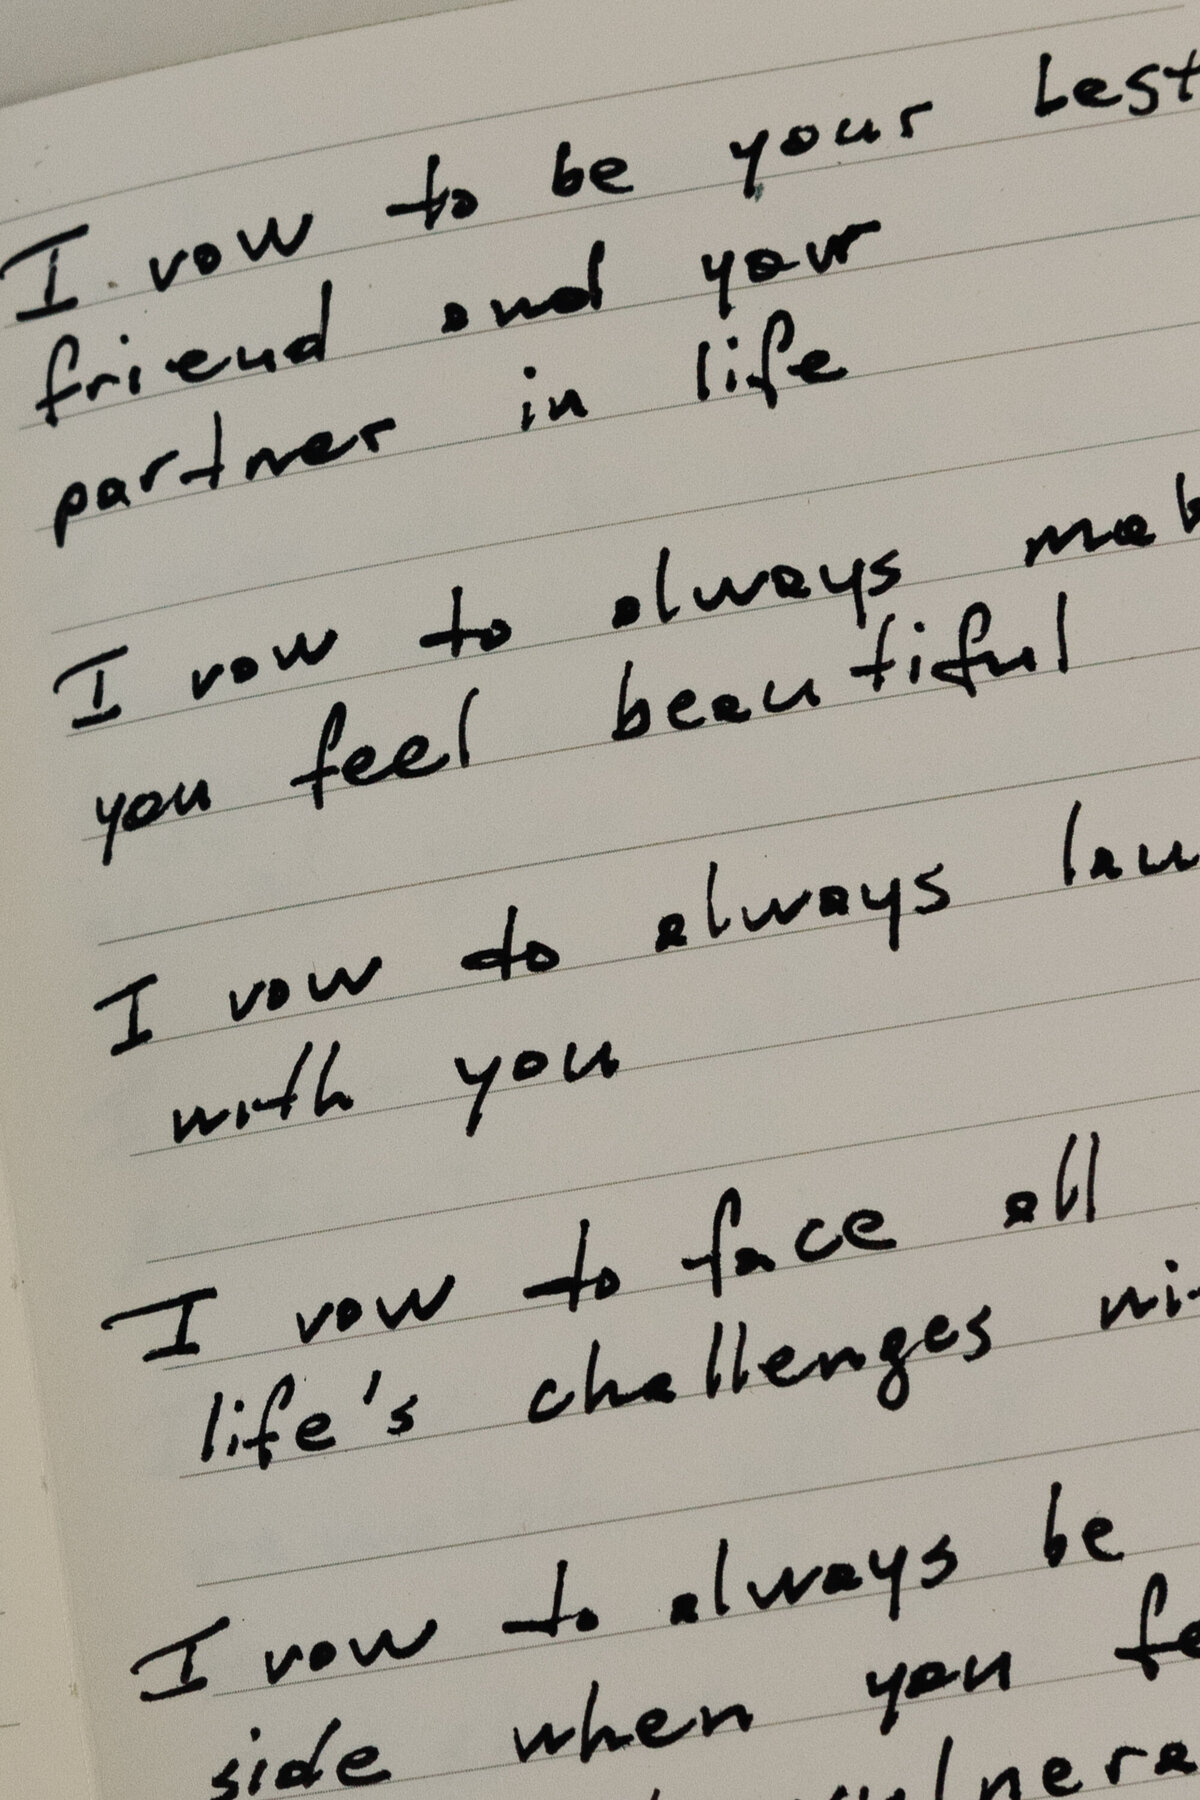 I vow to be your best
friend and your
partner in life
I vow to always
you feel beautiful
I vow to always
with you
I vow to face all
life's challenges
I vow to always be
side when you